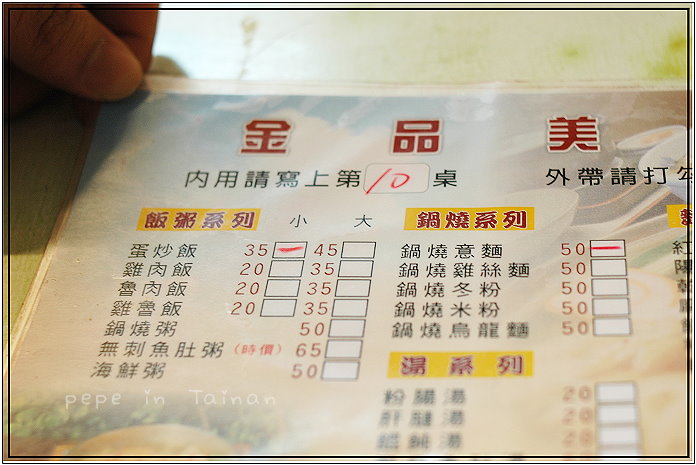 金品美
內用請寫上第10桌
外帶請打勾
飯粥系列 小 大
蛋炒飯 35 45
雞肉飯 20 35
魯肉飯 20 35
雞魯飯 20 35
鍋燒粥 50
無刺魚肚粥(時價) 65
海鮮粥 50
鍋燒系列
鍋燒意麵 50
鍋燒雞絲麵 50
鍋燒冬粉 50
鍋燒米粉 50
鍋燒烏龍麵 50
湯系列
粉腸湯 20
肝腱湯 20
餛飩湯 20
紅
pepe in Tainan